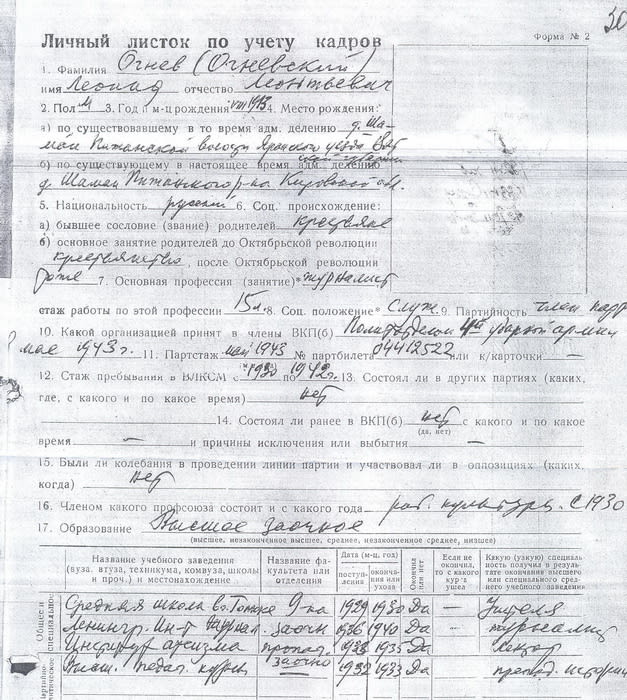 30
Личный листок по учету кадров
Форма № 2
1. Фамилия Огнев (Огневский)
имя Леонид отчество Леонтьевич
2. Пол М 3. Год и м-ц рождения VIII 1913 4. Место рождения:
а) по существовавшему в то время адм. делению д. Ша-
маи Пижанской волости Яранского уезда Вят
ской губернии
б) по существующему в настоящее время адм. делению
д. Шамаи Пижанского р-на Кировской обл.
5. Национальность русский 6. Соц. происхождение:
а) бывшее сословие (звание) родителей крестьяне
б) основное занятие родителей до Октябрьской революции
крестьянство, после Октябрьской революции
тоже 7. Основная профессия (занятие) журналист
стаж работы по этой профессии 15 л. 8. Соц. положение служ. 9. Партийность член парт
10. Какой организацией принят в члены ВКП(б) Политотделом 4й ударной армии
мае 1943 г. 11. Партстаж май 1943 № партбилета 04412522 или к/карточки —
12. Стаж пребывания в ВЛКСМ с 1930 по 1942 г. 13. Состоял ли в других партиях (каких,
где, с какого и по какое время) нет
14. Состоял ли ранее в ВКП(б) нет с какого и по какое
(да, нет)
время — и причины исключения или выбытия —
15. Были ли колебания в проведении линии партии и участвовал ли в оппозициях (каких,
когда) нет
16. Членом какого профсоюза состоит и с какого года раб. культуры с 1930
17. Образование Высшее заочное
(высшее, незаконченное высшее, среднее, незаконченное среднее, низшее)
Общее и специальное
Название учебного заведения (вуза, втуза, техникума, комвуза, школы и проч.) и местонахождение Название факультета или отделения Дата (м-ц, год) поступления окончания или ухода Окончил или нет Если не окончил, то с какого курса ушел Какую (узкую) специальность получил в результате окончания высшего или специального среднего учебного заведения
Средняя школа в г. 9-ка 1929 1930 Да — Учителя
Ленингр. Ин-т журнал. заочн 1936 1940 Да — журналист
Институт пропаг. 1933 1935 Да — лектор
педаг. курсы заочно 1932 1933 Да — препод. истории